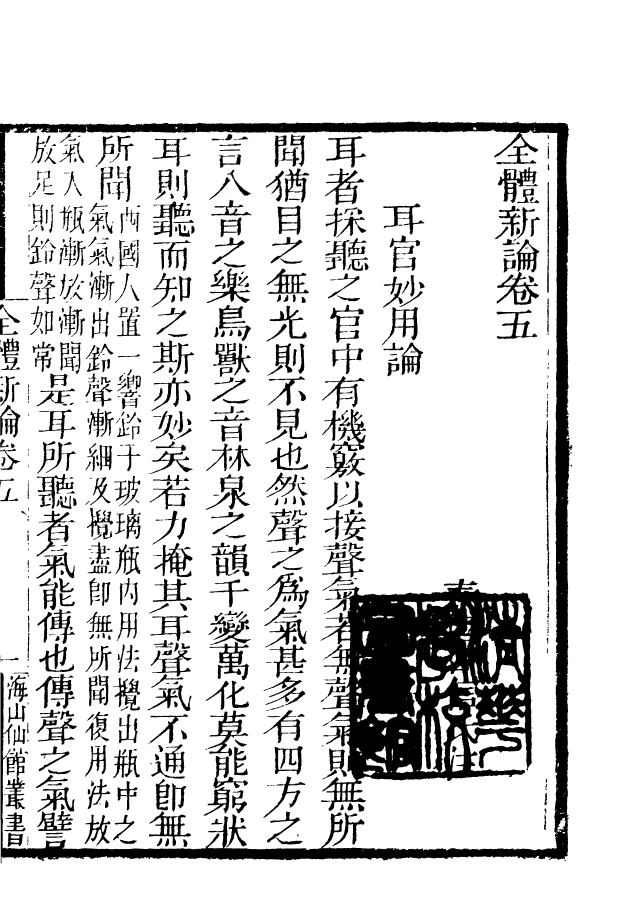 全體新論卷五
耳官妙用論
耳者探聽之官中有機竅以接聲氣若無聲氣則無所
聞猶目之無光則不見也然聲之為氣甚多有四方之
言八音之樂鳥獸之音林泉之韻千變萬化莫能窮狀
耳則聽而知之斯亦妙矣若力掩其耳聲氣不通卽無
所聞
西國人置一響鈴于玻璃瓶內用法攪出瓶中之
氣氣漸出鈴聲漸細及攪盡卽無所聞復用法放
氣入瓶漸放漸聞
放足則鈴聲如常
是耳所聽者氣能傳也傳聲之氣譬
全體新論卷五
一
海山仙館叢書